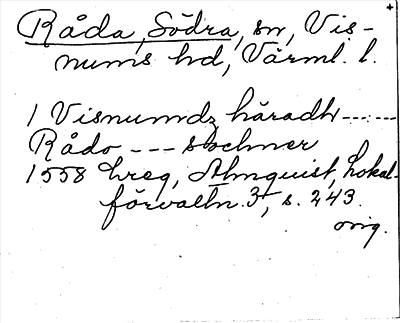 Råda, Södra, sn, Vis-
nums hd, Värml. l.
I Visnumdz häradh --- ---
Rådo --- sochner
1558 hreg, Almquist, Lokal-
förvaltn. 3, s. 243.
orig.